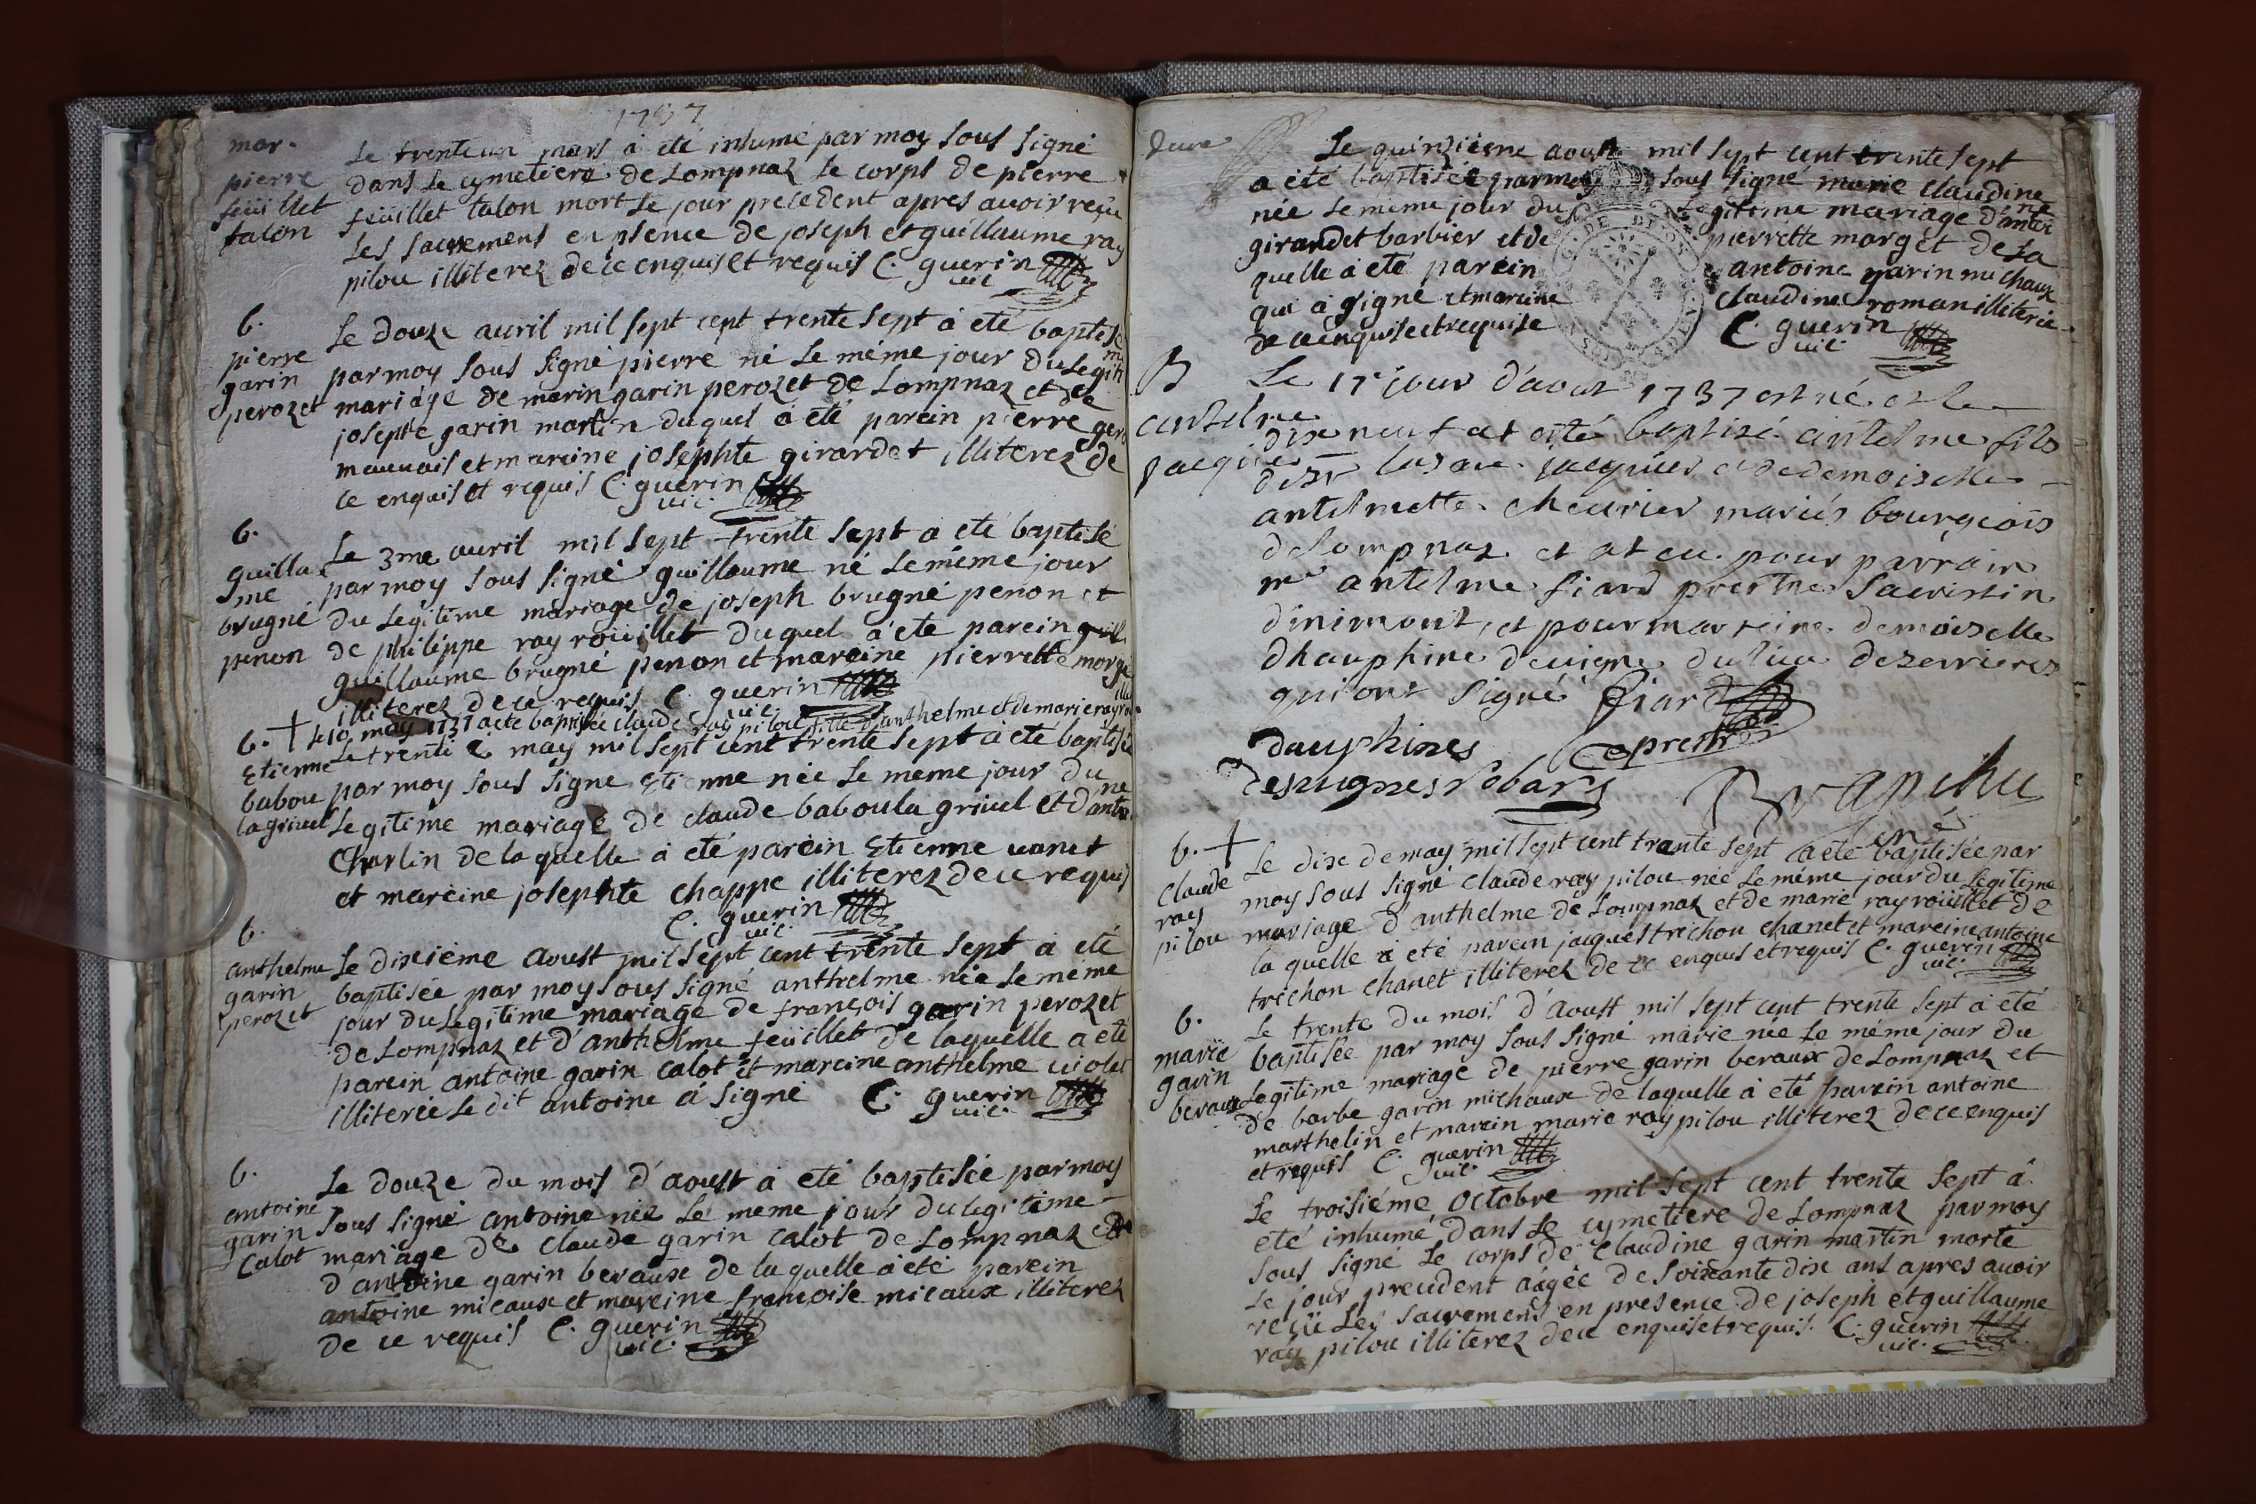 1737
mor.
pierre
feüillet
talon
Le trente un mars à eté inhumé par moy sous signé
dans Le cymetiere de Lompnaz Le corps de pierre
feüillet talon mort Le jour precedent apres avoir reçu
Les sacremens en psence de joseph et guillaume ray
pilou illiterez de ce enquis et requis C. guerin
vic.
b.
pierre
garin
perozet
Le douze auril mil sept cent trente sept à eté baptise
par moy sous signé pierre né Le méme jour du Legitime
mariage de marin garin perozet de Lompnaz et de
josephte garin martin duquel à eté parein pierre
mauuais et mareine josephte girardet illiterez de
ce enquis et requis C. guerin
vic.
b.
guillau
me
brugné
penon
Le 3me auril mil sept trente sept à eté baptisé
par moy sous signé guillaume né Le méme jour
du Legitime mariage de joseph brugné penon et
de philippe ray roüillet duquel à eté parein
guillaume brugné penon et mareine pierrette
illiterez de ce requis C. guerin
vic.
b. + Le 10 may 1737 a ete baptisée claude ray pilou fille d'anthelme et de marie ray
Etienne
babou
lagriuel
Le trente may mil sept cent trente sept à eté baptisée
par moy sous signe Etienne née Le meme jour du
Legitime mariage de claude babou la griuel et d'antne
Charlin de la quelle à eté parein Etienne
et mareine josephte chappe illiterez de ce requis
C. guerin
vic.
b.
anthelme
garin
perozet
Le dixiéme Aoust mil sept cent trente sept à eté
baptisée par moy sous signé anthelme née Le meme
jour du Legitime mariage de françois garin perozet
de Lompnaz et d'anthelme feüillet de laquelle a eté
parein antoine garin calot et mareine anthelme uiolet
illiterée Le dit antoine à signé C. guerin
vic.
b.
antoine
garin
Calot
Le douze du mois d'aoust à eté baptisée par moy
sous signé antoine née Le meme jour du legitime
mariage de Claude garin calot de Lompnaz et
d'antoine garin beraux de la quelle à eté parein
antoine micaux et mareine françoise micaux illiterez
de ce requis C. guerin
vic.
Le quinziéme aoust mil sept cent trente sept
a été baptisée par moy sous signé marie claudine
née Le meme jour du Legitime mariage d'antoi ne
girardet barbier et de pierrette marget de La
quelle à eté parein antoine garin michaux
qui à signé et mareine claudine roman illiterée
de ce enquise et requise C. guerin
vic.
B
antelme
jacquier
Le 17e jour d'aout 1737 est né et le
dix neuf at esté baptizé antelme fils
de sr Lazare jacquier et de demoizelle
antelmette cheurier mariés bourgeois
de Lompnaz et at eu pour parrain
mre antelme fiard prestre sacristin
d'inimont, et pour marreine demoiselle
dhauphine deuigne du lieu de zerrieres
qui ont signé fiard
dauphines
b. +
claude
ray
pilou
Le dix de may mil sept cent trante sept a eté baptisée par
moy sous signé claude ray pilou née Le méme jour du Legitime
mariage d'anthelme de Lompnaz et de marie ray roüillet de
la quelle à eté parein jacques trichon chanet et mareine antoine
trichon chanet illiterez de ce enquis et requis C. guerin
vic.
b.
marie
garin
beraux
Le trente du mois d'Aoust mil sept cent trente sept à eté
baptisée par moy sous signé marie née Le méme jour du
Legitime mariage de pierre garin beraux de Lompnaz et
de barbe garin michaux de laquelle à eté parein antoine
marthelin et marein marie ray pilou illiterez de ce enquis
et requis C. guerin
vic.
Le troisiéme Octobre mil sept cent trente sept à
eté inhumé dans Le cymetiere de Lompnaz par moy
sous signé Le corps de Claudine garin martin morte
Le jour precedent aágée de soixante dix ans apres avoir
reçu Les sacremens en presence de joseph et guillaume
ray pilou illiterez de ce enquis et requis. C. guerin
vic.